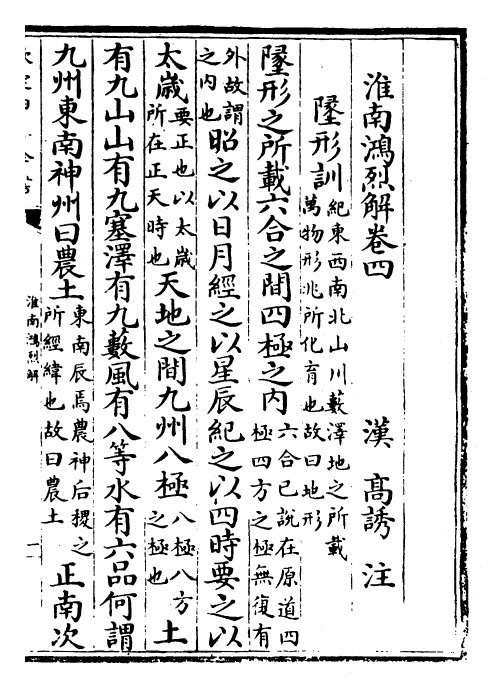 淮南鴻烈解卷四
漢 髙誘 注
墬形訓 紀東西南北山川藪澤地之所載萬物形兆所化育也故曰地形
墬形之所載六合之間四極之内 六合已説在原道四極四方之極無復有
外故謂之内也 昭之以日月經之以星辰紀之以四時要之以
太歳 要正也以太歳所在正天時也 天地之間九州八極 八極八方之極也 土
有九山山有九塞澤有九藪風有八等水有六品何謂
九州東南神州曰農土 東南辰焉農神后稷之所經緯也故曰農土 正南次
淮南鴻烈解
一